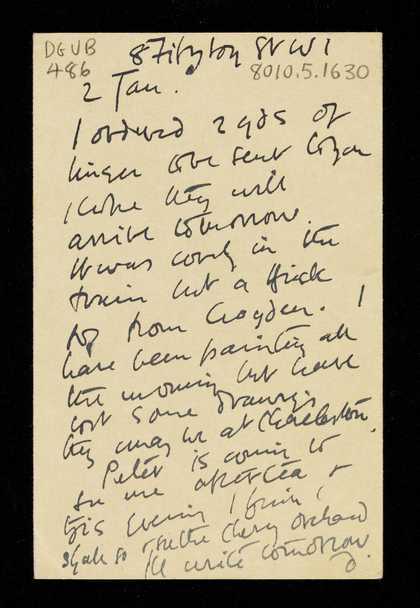 DGVB
486
8 Fitzroy St W1
8010.5.1630
2 Jan.
I ordered 2 yds of
to be sent to you
I hope they will
arrive tomorrow.
It was lovely in the
train but a thick
fog from Croydon. I
have been painting all
the morning but have
lost some drawings
they may be at Charleston.
Peter is coming to
see me after tea &
this evening I think I
shall go to the Cherry Orchard
I'll write tomorrow.
D.